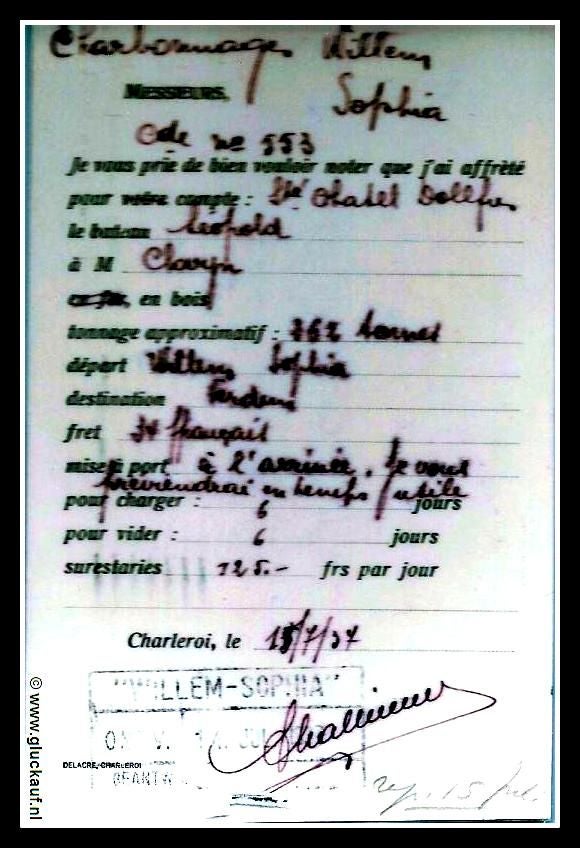 Charbonnages Willem
Messieurs,
Sophia
Cde no 553
Je vous prie de bien vouloir noter que j'ai affrété
pour votre compte : Sté Chatel Dollfus
le bateau Léopold
à M
en fer, en bois
tonnage approximatif : 362 tonnes
départ Willem Sophia
destination
fret 34 français
mise à port à l'arrivée. Je vous
préviendrai en temps utile
pour charger : 6 jours
pour vider : 6 jours
surestaries 125.- frs par jour
Charleroi, le 15/7/37
"WILLEM-SOPHIA"
DELACRE, CHARLEROI
© www.gluckauf.nl